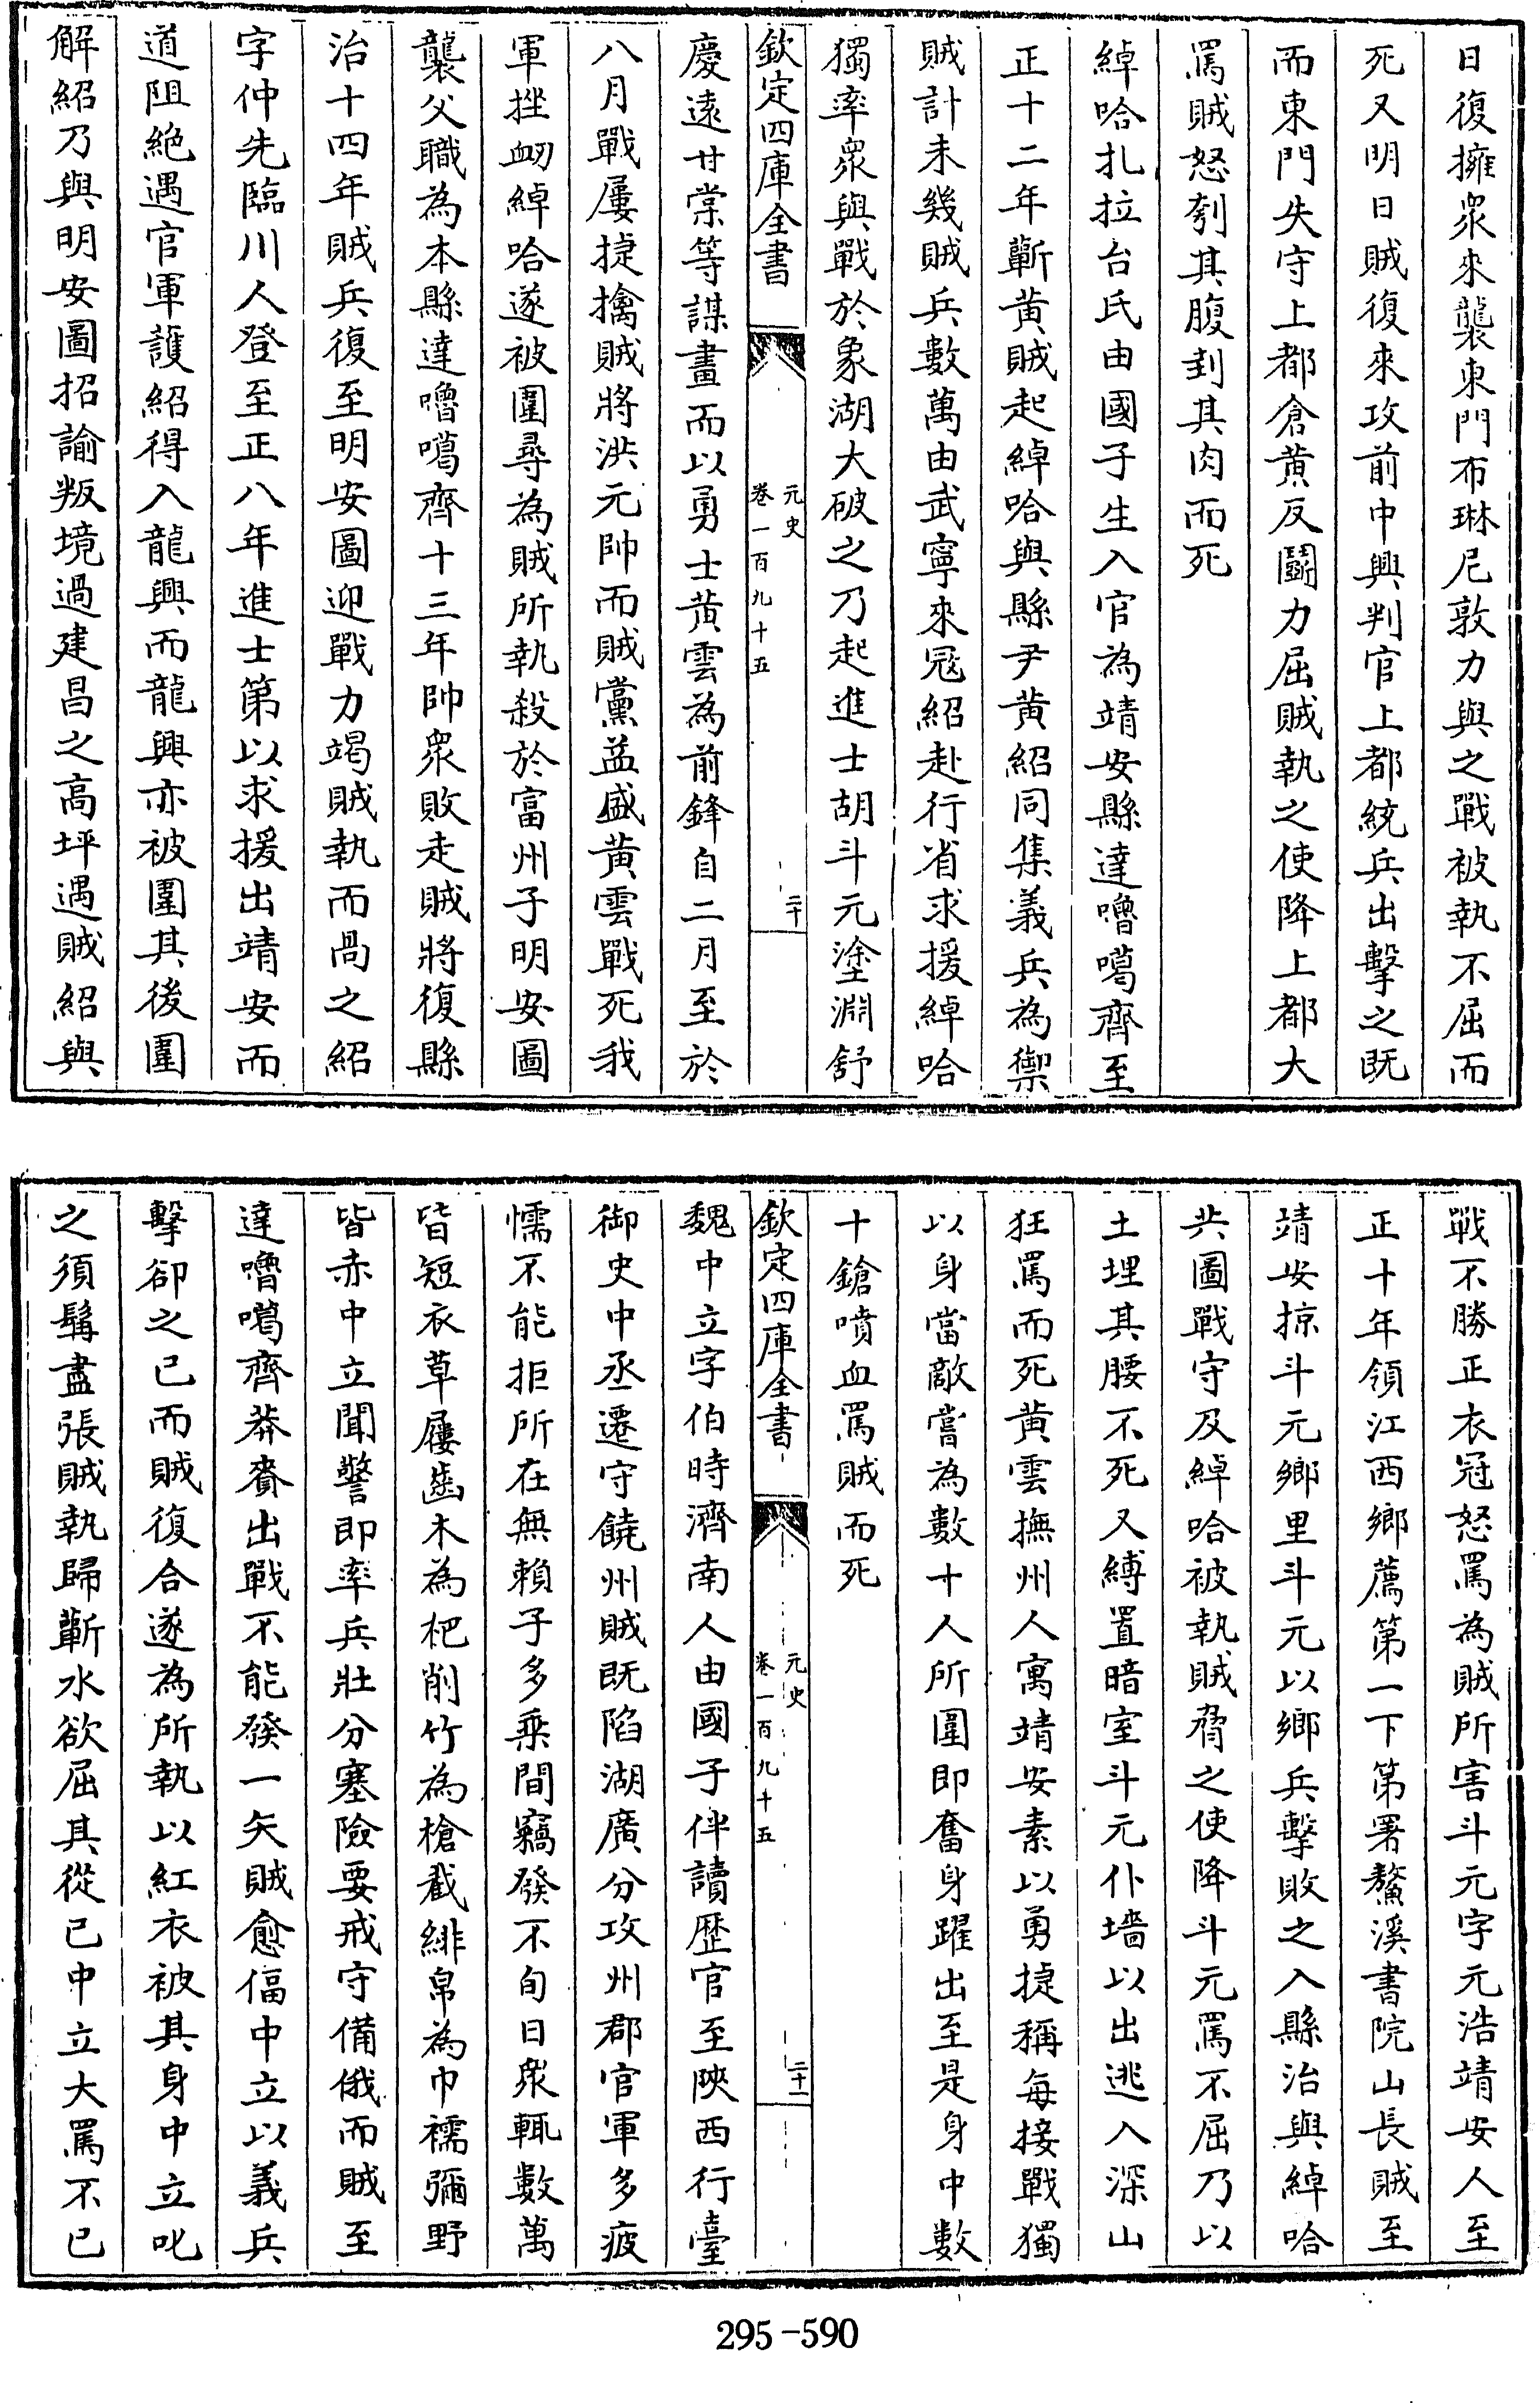 日復擁衆來襲東門布琳尼敦力與之戰被執不屈而
死又明日賊復來攻前中興判官上都統兵出擊之既
而東門失守上都倉黄反鬬力屈賊執之使降上都大
罵賊怒刳其腹刲其肉而死
綽哈扎拉台氏由國子生入官為靖安縣達嚕噶齊至
正十二年蘄黄賊起綽哈與縣尹黄紹同集義兵為禦
賊計未幾賊兵數萬由武寧來冦紹赴行省求援綽哈
獨率衆與戰於象湖大破之乃起進士胡斗元塗淵舒
欽定四庫全書
元史
卷一百九十五
二十
慶遠甘棠等謀畫而以勇士黄雲為前鋒自二月至於
八月戰屢捷擒賊將洪元帥而賊黨益盛黄雲戰死我
軍挫衂綽哈遂被圍尋為賊所執殺於富州子明安圖
襲父職為本縣達嚕噶齊十三年帥衆敗走賊將復縣
治十四年賊兵復至明安圖迎戰力竭賊執而咼之紹
字仲先臨川人登至正八年進士第以求援出靖安而
道阻絶遇官軍護紹得入龍興而龍興亦被圍其後圍
解紹乃與明安圖招諭叛境過建昌之高坪遇賊紹與
戰不勝正衣冠怒罵為賊所害斗元字元浩靖安人至
正十年領江西鄉薦第一下第署鰲溪書院山長賊至
靖安掠斗元鄉里斗元以鄉兵擊敗之入縣治與綽哈
共圖戰守及綽哈被執賊脅之使降斗元罵不屈乃以
土埋其腰不死又縛置暗室斗元仆墻以出逃入深山
狂罵而死黄雲撫州人寓靖安素以勇捷稱每接戰獨
以身當敵嘗為數十人所圍即奮身躍出至是身中數
十鎗噴血罵賊而死
欽定四庫全書
元史
卷一百九十五
二十一
魏中立字伯時濟南人由國子伴讀歷官至陜西行臺
御史中丞遷守饒州賊既陷湖廣分攻州郡官軍多疲
懦不能拒所在無賴子多乘間竊發不旬日衆輒數萬
皆短衣草屨齒木為杷削竹為槍截緋帛為巾襦彌野
皆赤中立聞警即率兵壯分塞險要戒守備俄而賊至
達嚕噶齊莽賚出戰不能發一矢賊愈偪中立以義兵
擊卻之已而賊復合遂為所執以紅衣被其身中立叱
之須髯盡張賊執歸蘄水欲屈其從已中立大罵不已
295-590